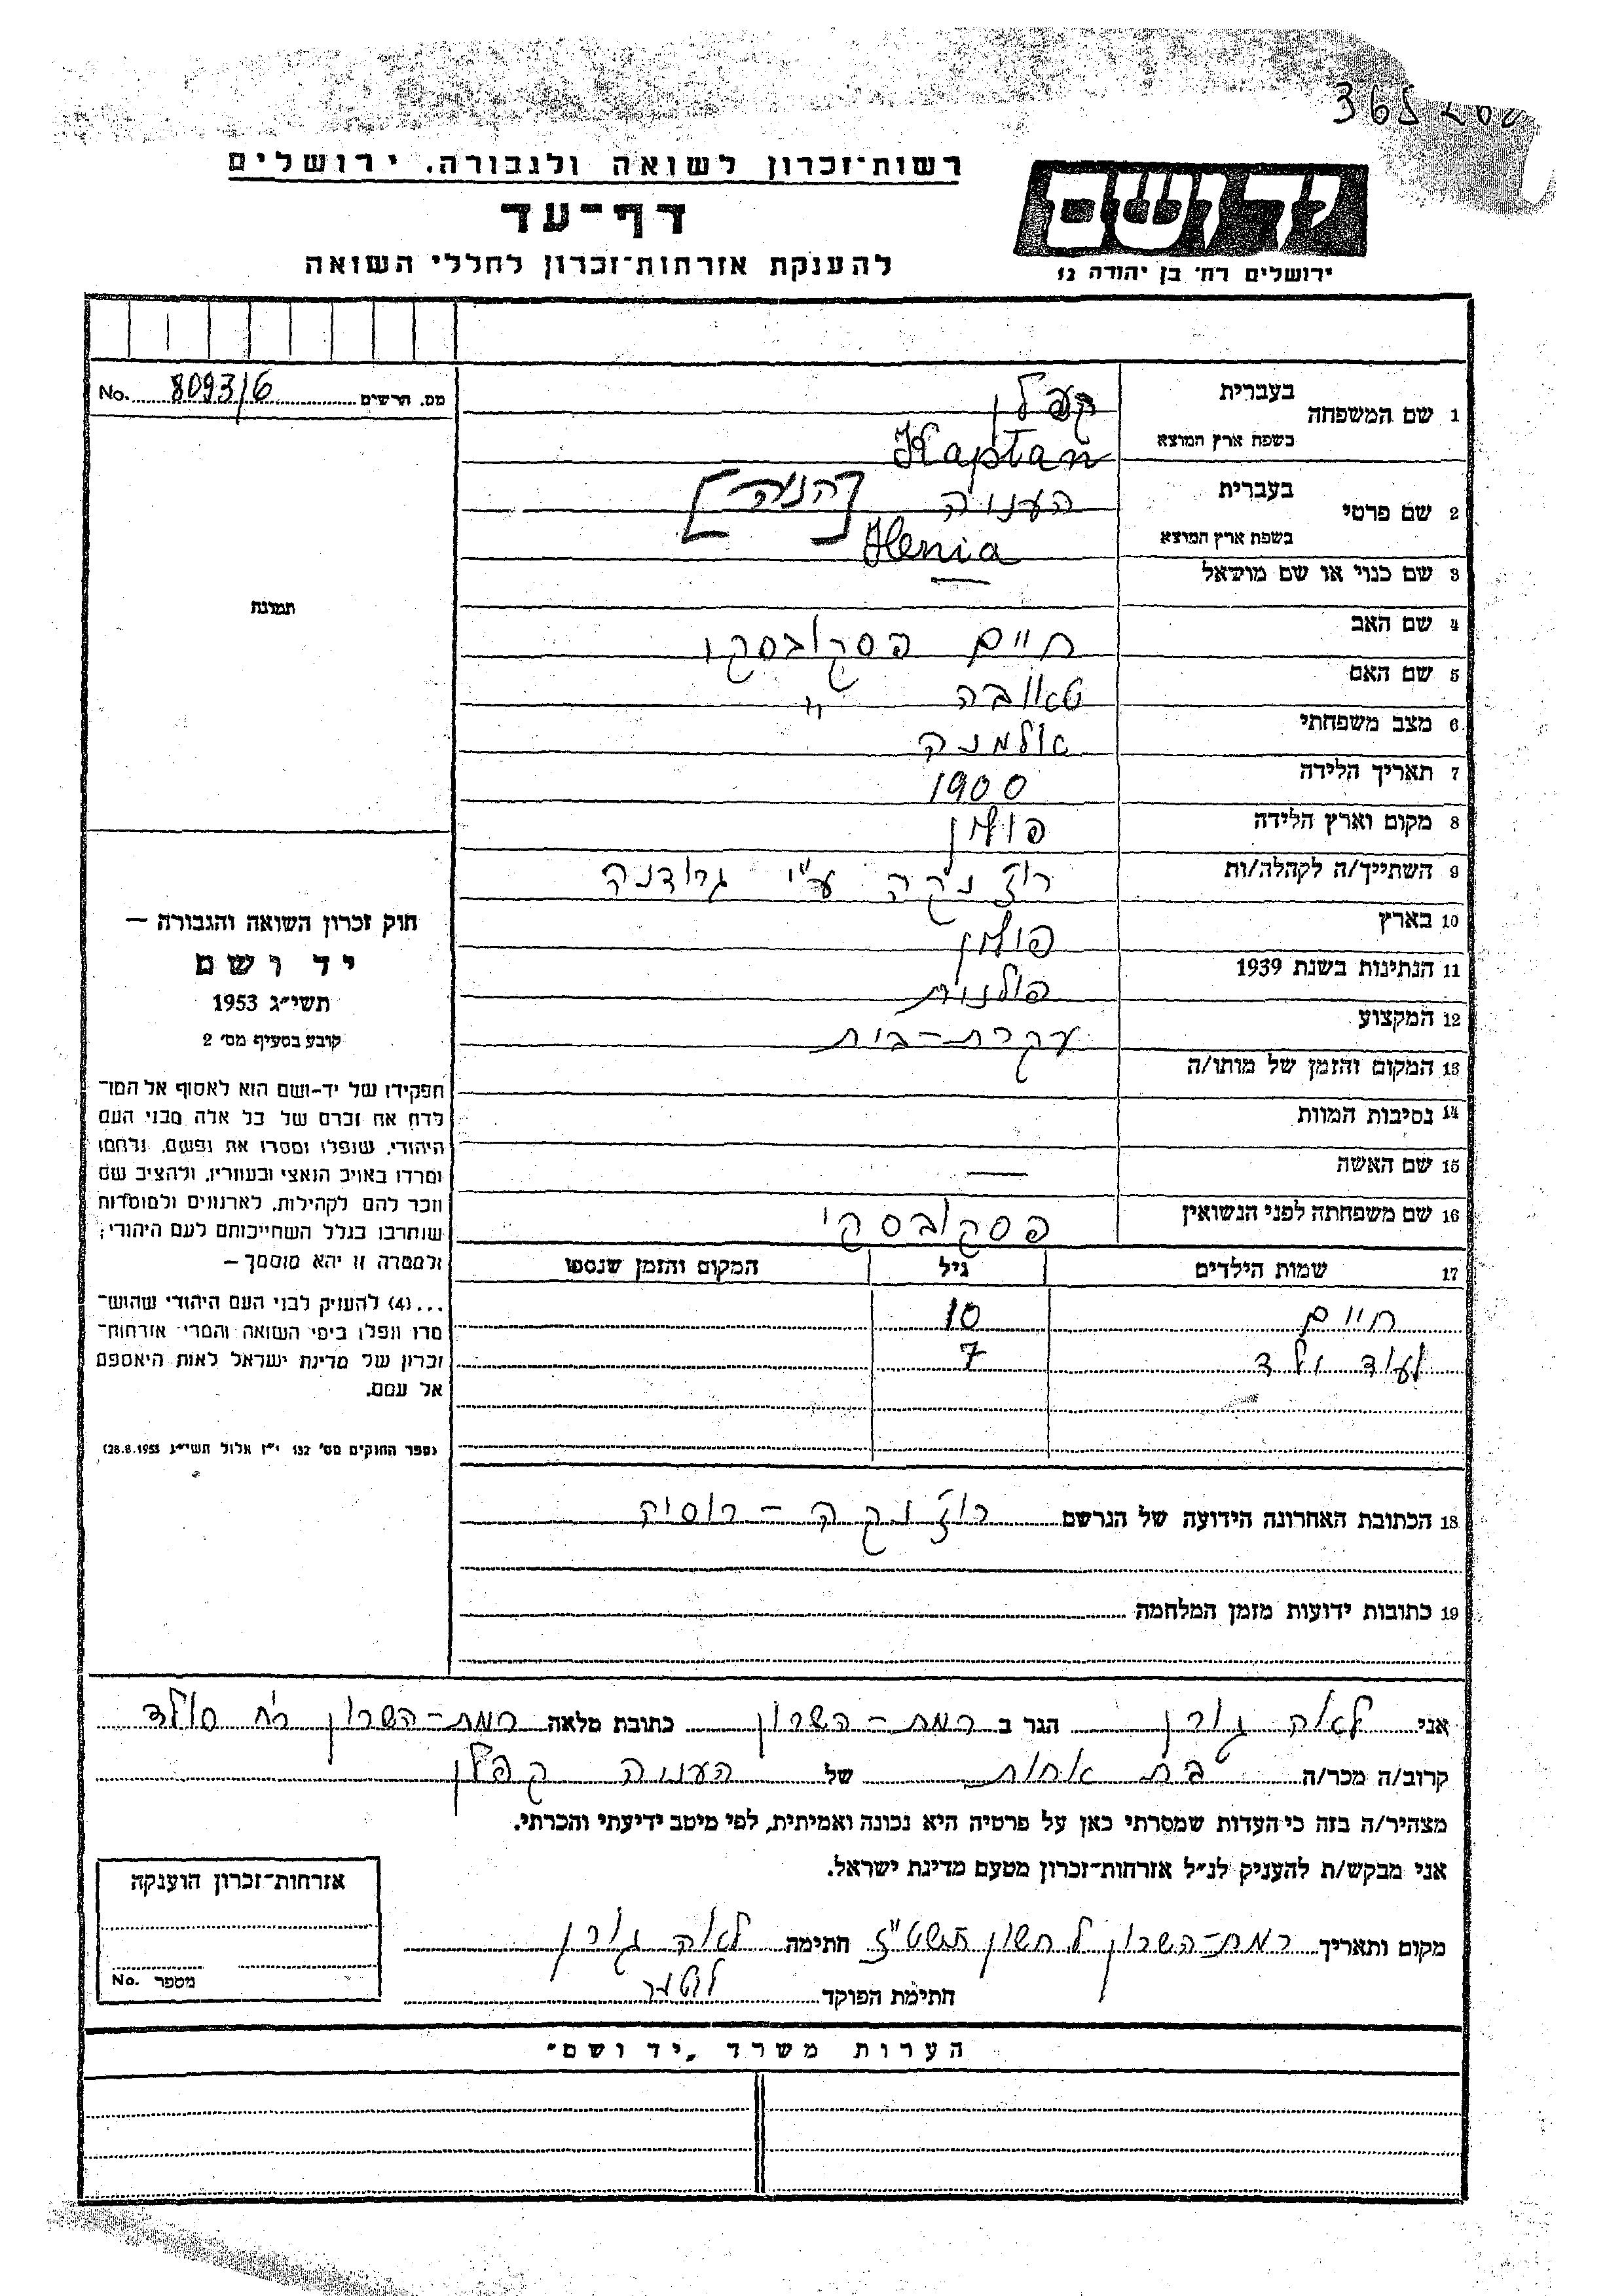 365200
רשות־זכרון לשואה ולגבורה. ירושלים
דף־עד
להענקת אזרחות־זכרון לחללי השואה
יד ושם
ירושלים רח׳ בן יהודה 12
1 שם המשפחה בעברית קפלן
בשפת ארץ המוצא Kaplan
2 שם פרטי בעברית העניה [הניה]
בשפת ארץ המוצא Henia
3 שם כנוי או שם מושאל —
4 שם האב חיים פסקובסקי
5 שם האם טאובה "
6 מצב משפחתי אלמנה
7 תאריך הלידה 1900
8 מקום וארץ הלידה פולין
9 השתייך/ה לקהלה/ות רוז'נקה ע"י גרודנה
10 בארץ פולין
11 הנתינות בשנת 1939 פולנית
12 המקצוע עקרת-בית
13 המקום והזמן של מותו/ה
14 נסיבות המוות
15 שם האשה —
16 שם משפחתה לפני הנשואין פסקובסקי
17 שמות הילדים גיל המקום והזמן שנספו
חיים 10
ועוד ילד 7
18 הכתובת האחרונה הידועה של הנרשם רוז'נקה - רוסיה
19 כתובות ידועות מזמן המלחמה
מס. הרשים No. 8093/6
תמונת
חוק זכרון השואה והגבורה —
יד ושם
תשי״ג 1953
קובע בסעיף מס׳ 2
תפקידו של יד-ושם הוא לאסוף אל המו־
לדת את זכרם של כל אלה מבני העם
היהודי, שנפלו ומסרו את נפשם, נלחמו
ומרדו באויב הנאצי ובעוזריו, ולהציב שם
וזכר להם לקהילות, לארגונים ולמוסדות
שנחרבו בגלל השתייכותם לעם היהודי;
ולמטרה זו יהא מוסמך —
...(4) להעניק לבני העם היהודי שהוש־
מדו ונפלו בימי השואה והמרי אזרחות־
זכרון של מדינת ישראל לאות היאספם
אל עמם.
(ספר החוקים מס׳ 132 י״ז אלול תשי״ג 28.8.1953)
אני לאה גורן הגר ב רמת-השרון כתובת מלאה רמת-השרון רח' סולד
קרוב/ה מכר/ה בת אחות של העניה קפלן
מצהיר/ה בזה כי העדות שמסרתי כאן על פרטיה היא נכונה ואמיתית, לפי מיטב ידיעתי והכרתי.
אני מבקש/ת להעניק לנ״ל אזרחות־זכרון מטעם מדינת ישראל.
מקום ותאריך רמת-השרון ל חשון תשט"ז חתימה לאה גורן
חתימת הפוקד
אזרחות־זכרון הוענקה
מספר No.
הערות משרד „יד ושם״